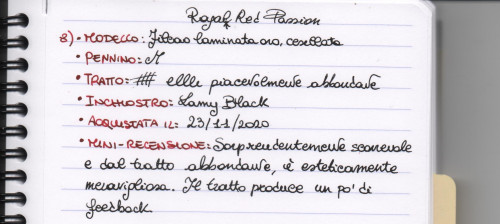 Royal Red Passion
8) • MODELLO: Jinhao laminata oro, cesellata
• PENNINO: M
• TRATTO: ## ellle piacevolmente abbondante
• INCHIOSTRO: Lamy Black
• ACQUISTATA IL: 23/11/2020
• MINI-RECENSIONE: Sorprendentemente scorrevole
e dal tratto abbondante, è esteticamente
meravigliosa. Il tratto produce un po' di
feedback.